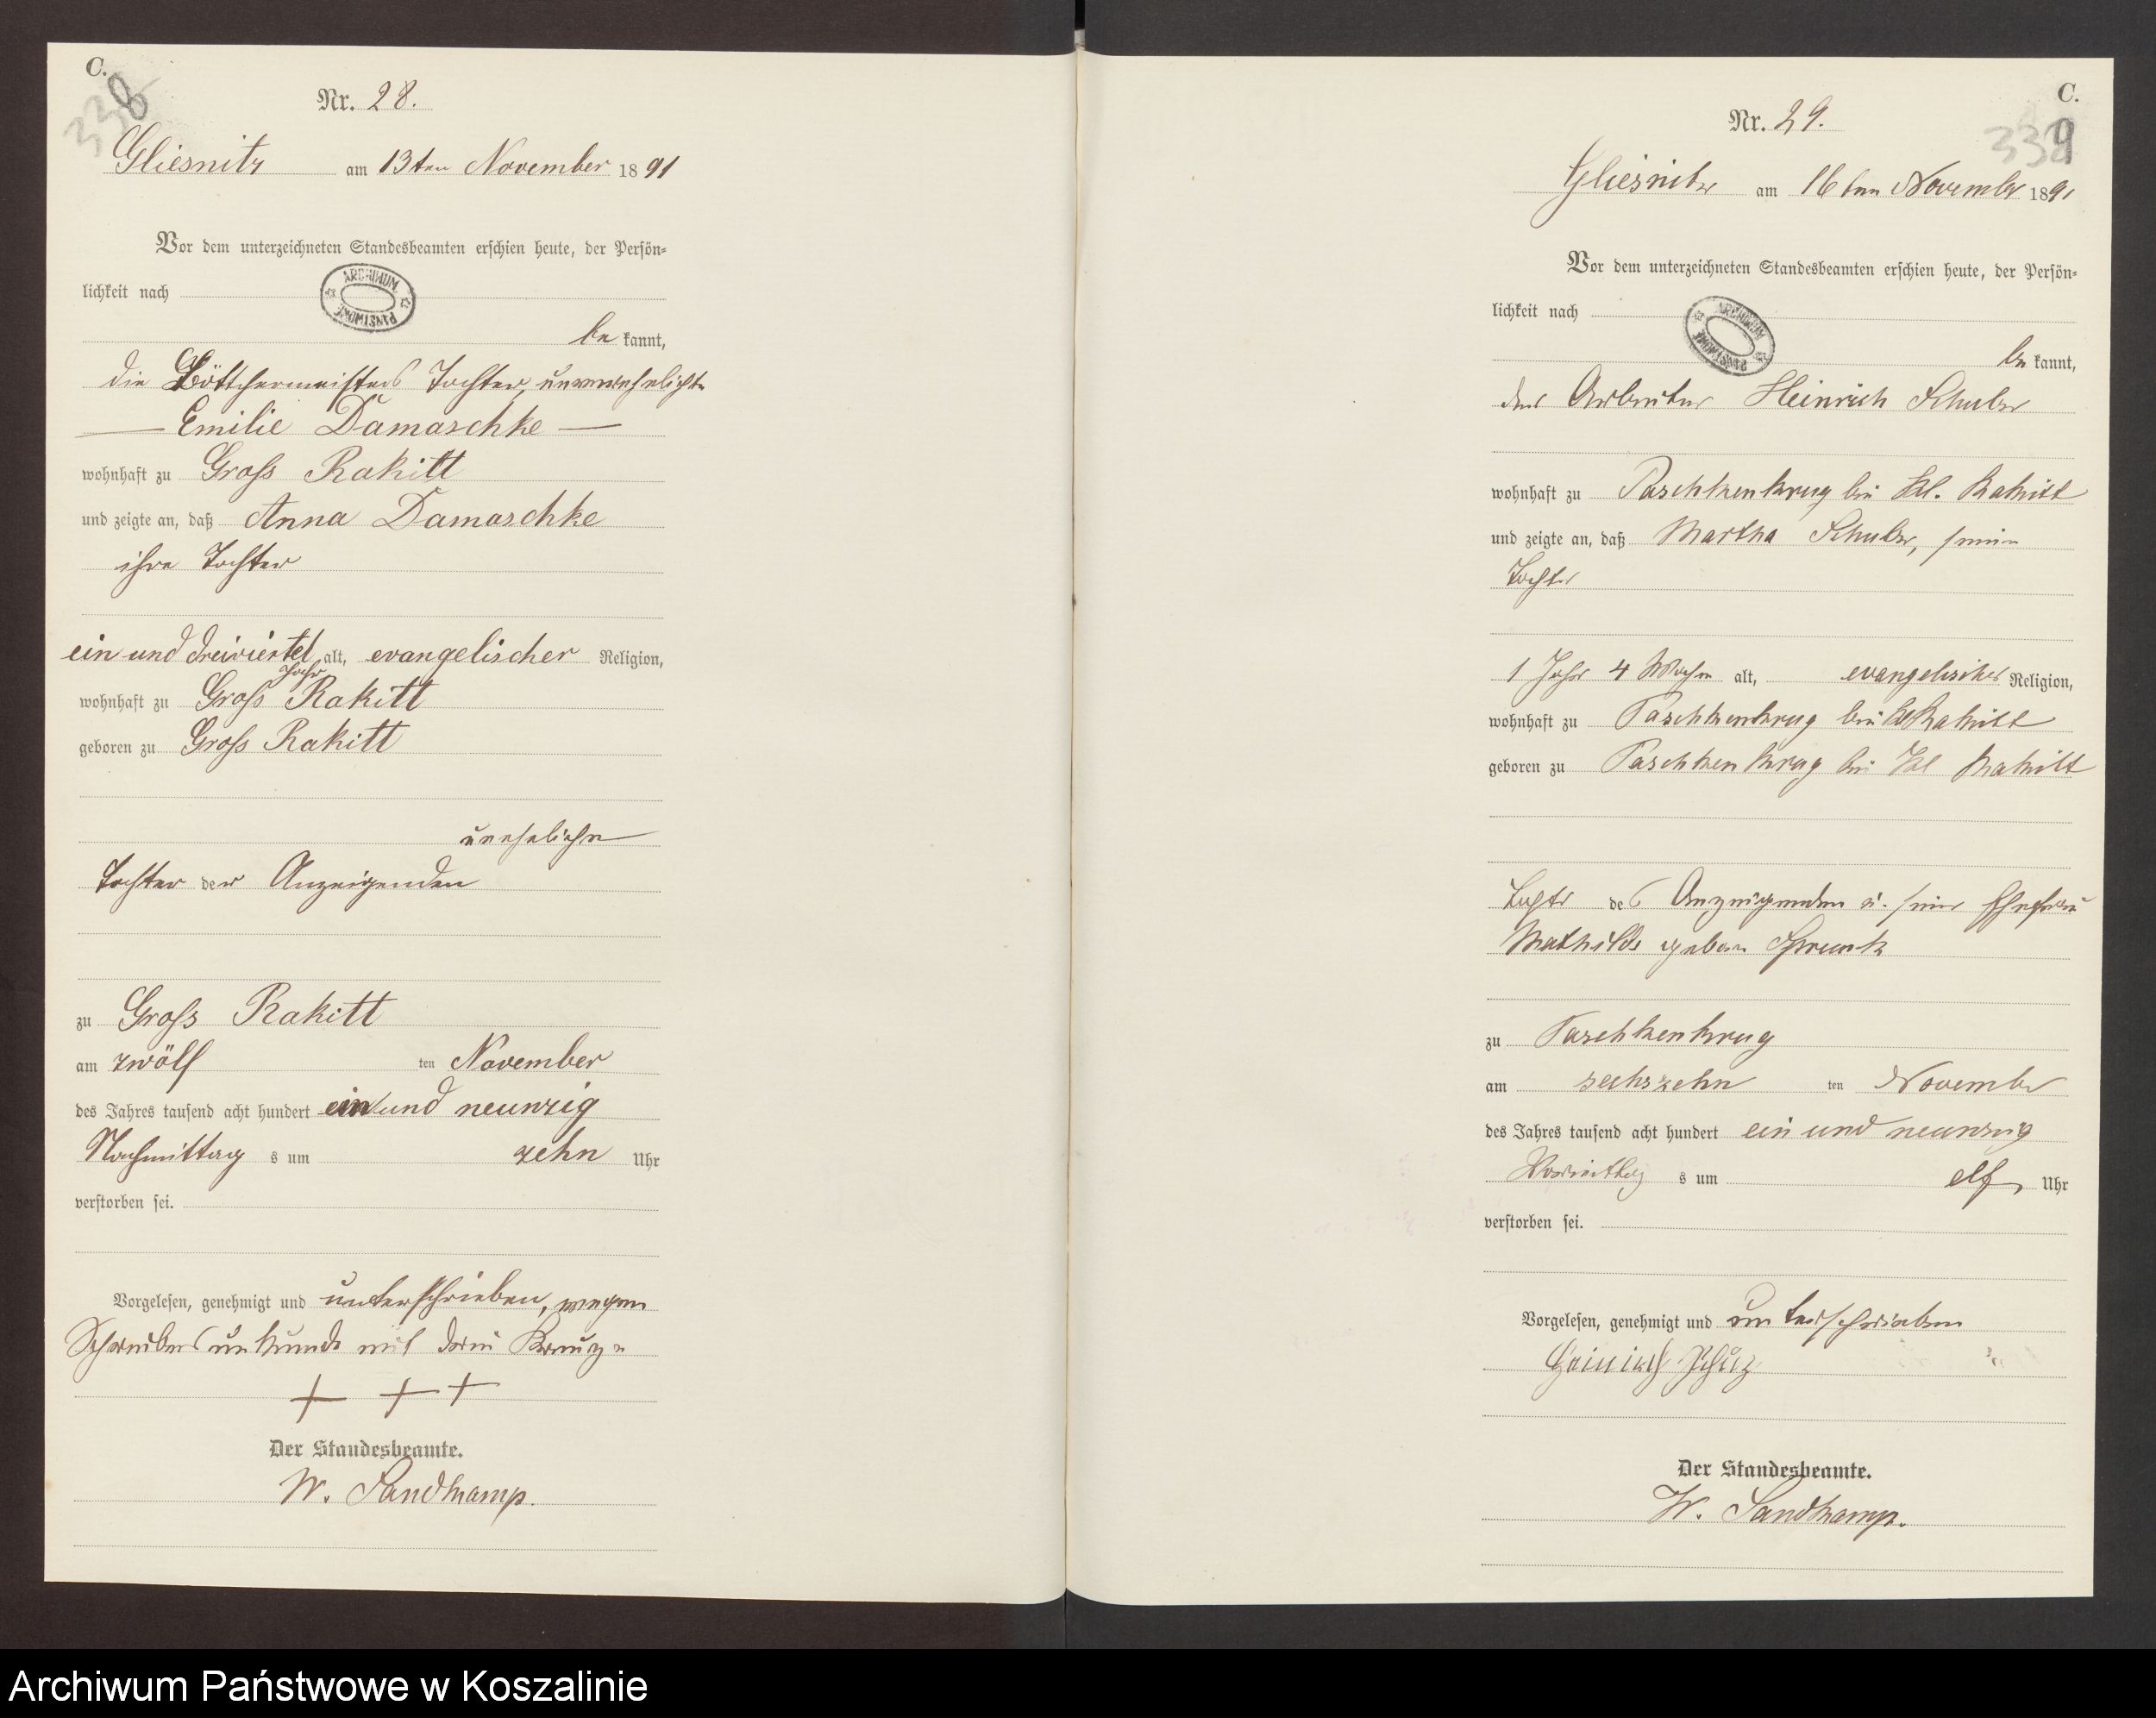 C.
338
Nr. 28.
Gliesnitz am 13ten November 1891
Vor dem unterzeichneten Standesbeamten erschien heute, der Persön-
lichkeit nach
ARCHIWUM PAŃSTWOWE
be kannt,
die Böttchermeisters Tochter, unverehelichte
Emilie Damaschke
wohnhaft zu Gross Rakitt
und zeigte an, daß Anna Damaschke
ihre Tochter
ein und dreiviertel Jahr alt, evangelischer Religion,
wohnhaft zu Gross Rakitt
geboren zu Gross Rakitt
uneheliche
Tochter der Anzeigenden
zu Gross Rakitt
am zwölf ten November
des Jahres tausend acht hundert ein und neunzig
Nachmittag s um zehn Uhr
verstorben sei.
Vorgelesen, genehmigt und unterschrieben, wegen
Schreibensunkunde mit drei Kreuze
+ + +
Der Standesbeamte.
W. Sandkamp.
C.
339
Nr. 29.
Gliesnitz am 16ten November 1891
Vor dem unterzeichneten Standesbeamten erschien heute, der Persön-
lichkeit nach
ARCHIWUM PAŃSTWOWE
be kannt,
der Arbeiter Heinrich Schulz
wohnhaft zu Paschkenkrug bei Kl. Rakitt
und zeigte an, daß Martha Schulz, seine
Tochter
1 Jahr 4 Wochen alt, evangelischer Religion,
wohnhaft zu Paschkenkrug bei Kl Rakitt
geboren zu Paschkenkrug bei Kl Rakitt
Tochter des Anzeigenden u. seiner Ehefrau
Mathilde geboren
zu Paschkenkrug
am sechszehn ten November
des Jahres tausend acht hundert ein und neunzig
Vormittag s um elf Uhr
verstorben sei.
Vorgelesen, genehmigt und unterschrieben
Heinrich Schulz
Der Standesbeamte.
W. Sandkamp.
Archiwum Państwowe w Koszalinie